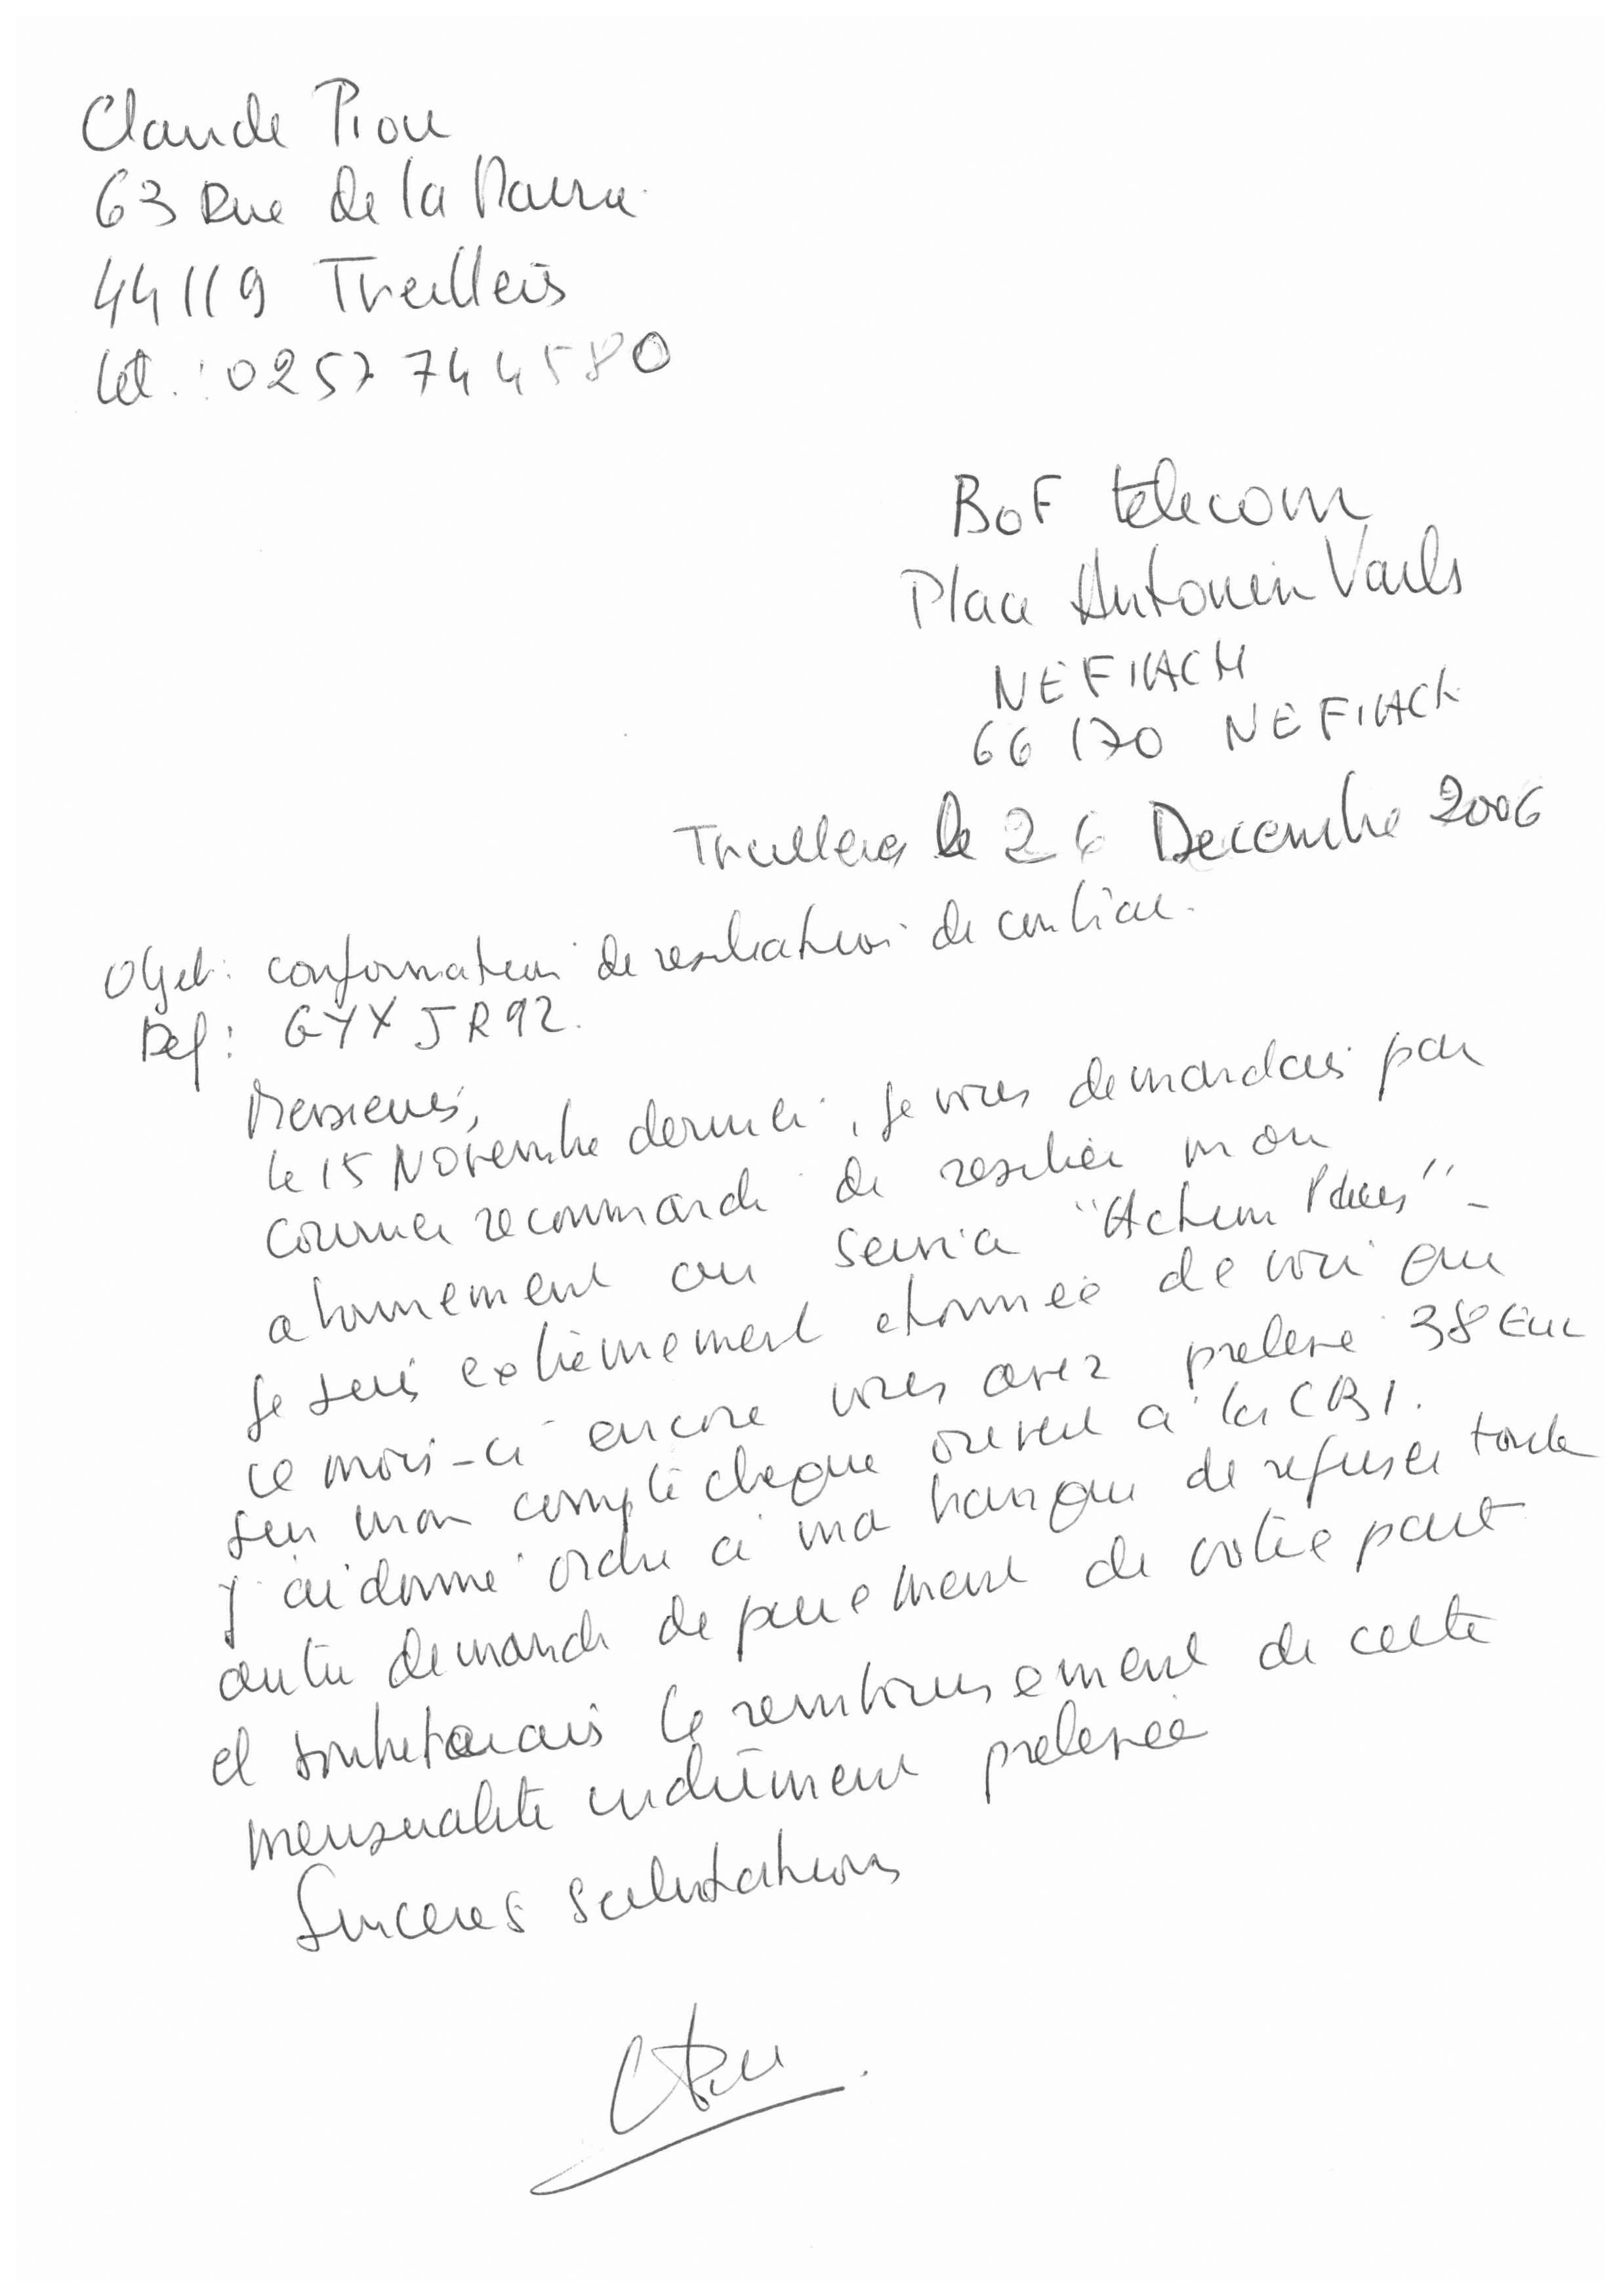 Claude Piou
63 Rue de la Mairie
44119 Treillières
tel.: 0257 744580
BOF telecom
Place Antonin Vails
NEFIACH
66170 NEFIACH
Treillieres le 26 Decembre 2006
Objet: confirmation de resiliation de contrat.
Ref: GYXJR92.
Messieurs,
le 15 Novembre dernier, je vous demandais par
courrier recommandé de resilier mon
abonnement au service "Action Plus".
Je suis extrêmement étonnée de voir que
ce mois-ci encore vous avez prelevé 38 Eur
sur mon compte cheque ouvert à la CBI.
J'ai donné ordre à ma banque de refuser toute
autre demande de paiement de votre part
et souhaterais le remboursement de cette
mensualité indûment prelevée
Sinceres salutations